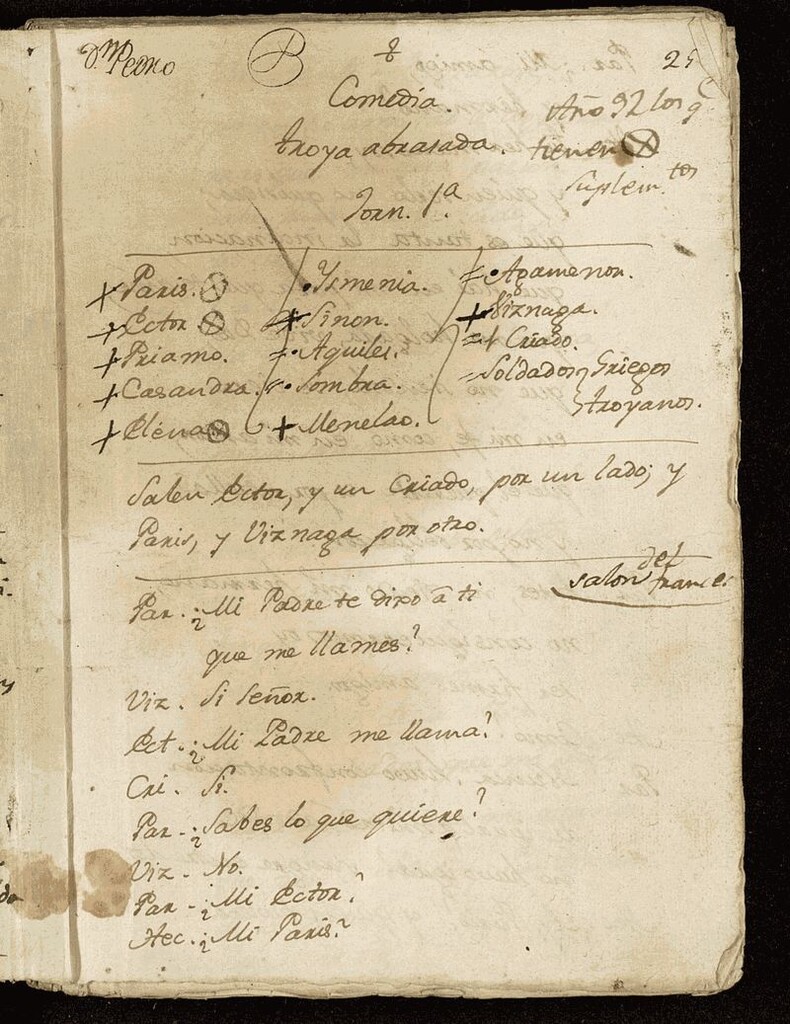 Dn. Pedro
25
Comedia.
troya abrasada.
Jorn. 1ª.
Año 92 los q
tienen
Suplemtos
Paris.
Ector.
Priamo.
Casandra.
Elena
Ysmenia.
Sinon.
Aquiles.
Sombra.
Menelao.
Agamenon.
Viznaga.
Criado.
Soldados Griegos
troyanos.
Salen Ector, y un Criado, por un lado; y
Paris, y Viznaga por otro.
salon del
frances
Par. ¿Mi Padre te dixo â ti
que me llames?
Viz. Si Señor.
Ect. ¿Mi Padre me llama?
Cri. Si.
Par. ¿Sabes lo que quiere?
Viz. No.
Par. ¿Mi Ector?
Hec. ¿Mi Paris?